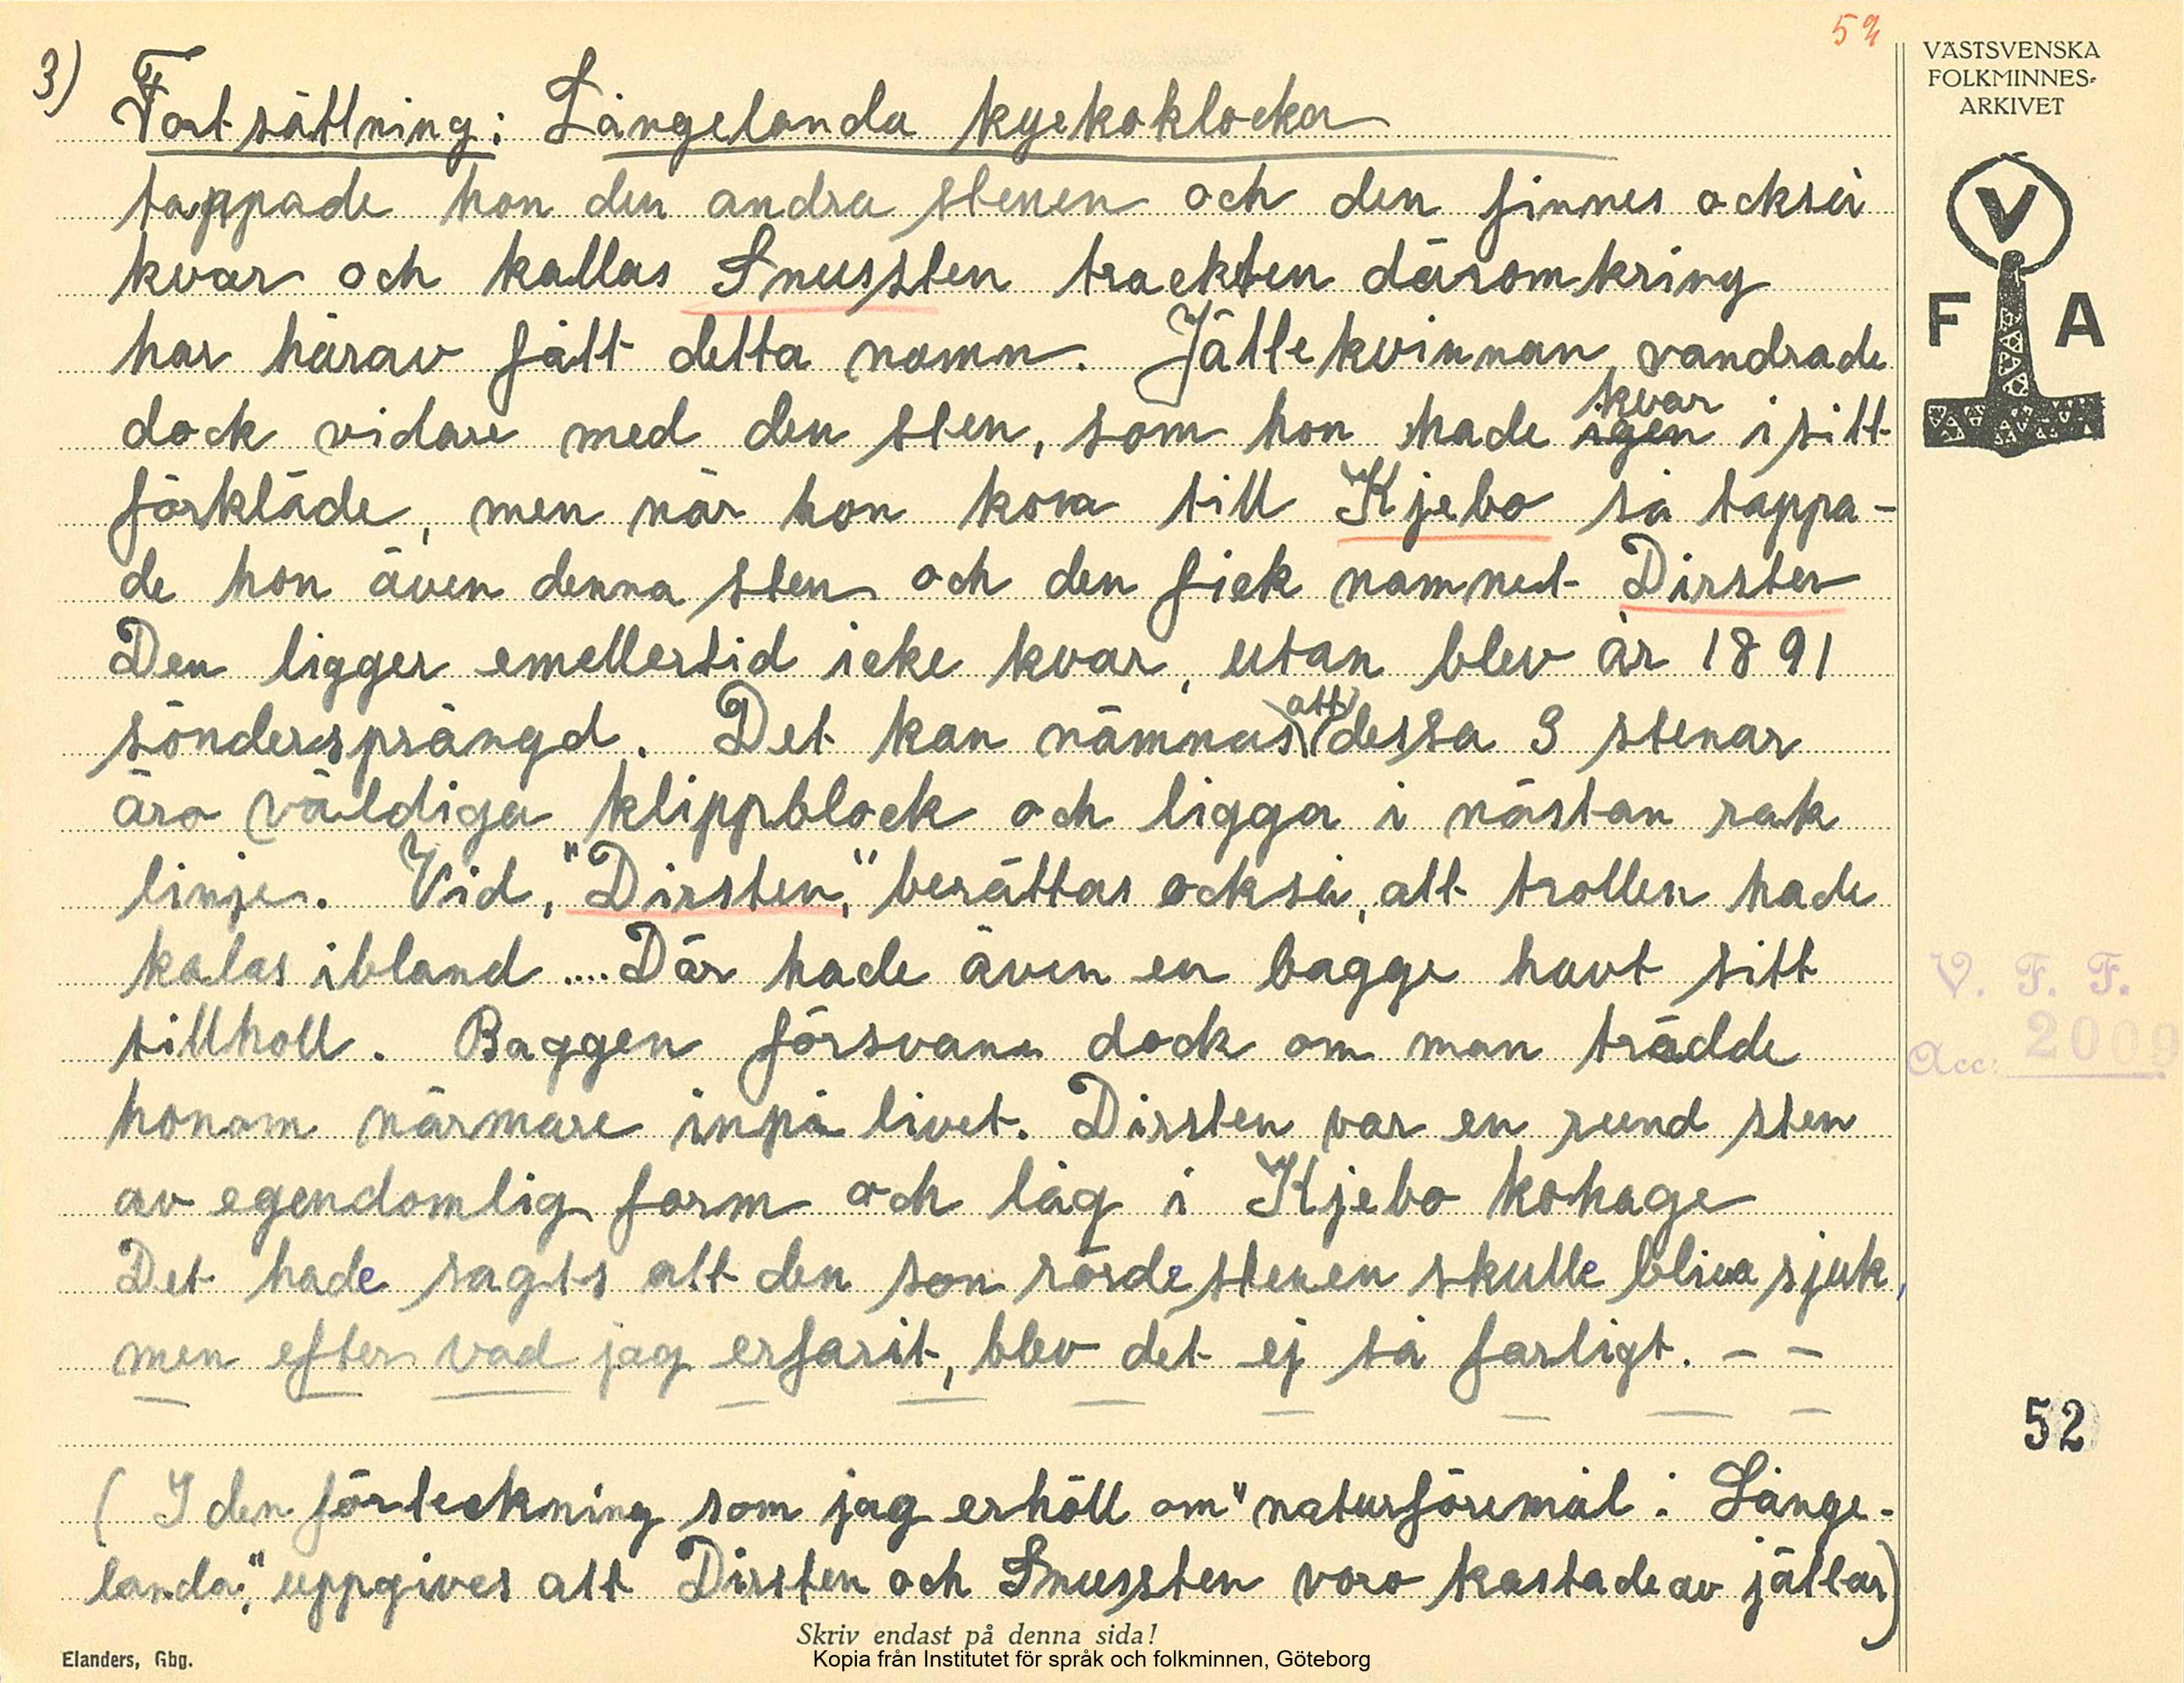 52
3)
Fortsättning: Långelanda kyrkoklocka
tappade hon den andra stenen och den finnes också
kvar och kallas Snussten trackten däromkring
har härav fått detta namn. Jättekvinnan vandrade
dock vidare med den sten, som hon hade igen kvar i sitt
förkläde, men när hon kom till Kjebo så tappa-
de hon även denna sten och den fick namnet Dirsten
Den ligger emellertid icke kvar, utan blev år 1891
söndersprängd. Det kan nämnas att dessa 3 stenar
äro väldiga klippblock och ligga i nästan rak
linje. Vid, "Dirsten," berättas också, att trollen hade
kalas ibland .... Där hade även en bagge havt sitt
tillholl. Baggen försvann dock om man trädde
honom närmare inpå livet. Dirsten var en rund sten
av egendomlig form och låg i Kjebo kohage
Det hade sagts att den som rörde stenen skulle bliva sjuk,
men efter vad jag erfarit, blev det ej så farligt. – –
(I den förteckning som jag erhöll om "naturföremål i Långe-
landa," uppgives att Dirsten och Snussten voro kastade av jättar)
Skriv endast på denna sida!
Elanders, Gbg.
Kopia från Institutet för språk och folkminnen, Göteborg
VÄSTSVENSKA
FOLKMINNES-
ARKIVET
V
F A
V. F. F.
Acc: 2009
52